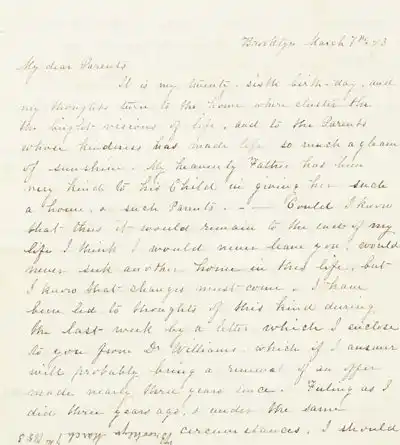 Brooklyn March 7th
My dear Parents
It is my twenty-sixth birth-day, and
my thoughts turn to the home where cluster the
the bright visions of life, and to the Parents
whose kindness has made life so much a gleam
of sunshine. My heavenly Father has been
very kind to his Child in giving her such
a home, & such Parents. — Could I know
that thus it would remain to the end of my
life I think I would never leave you, would
never seek another home in this life, but
I know that changes must come. I have
been led to thoughts of this kind during
the last week by a letter which I inclose
to you from Dr Williams. which if I answer
will probably bring a renewal of an offer
made nearly three years since. Feeling as I
did three years ago, & under the same
circumstances, I should
Brooklyn March 7th